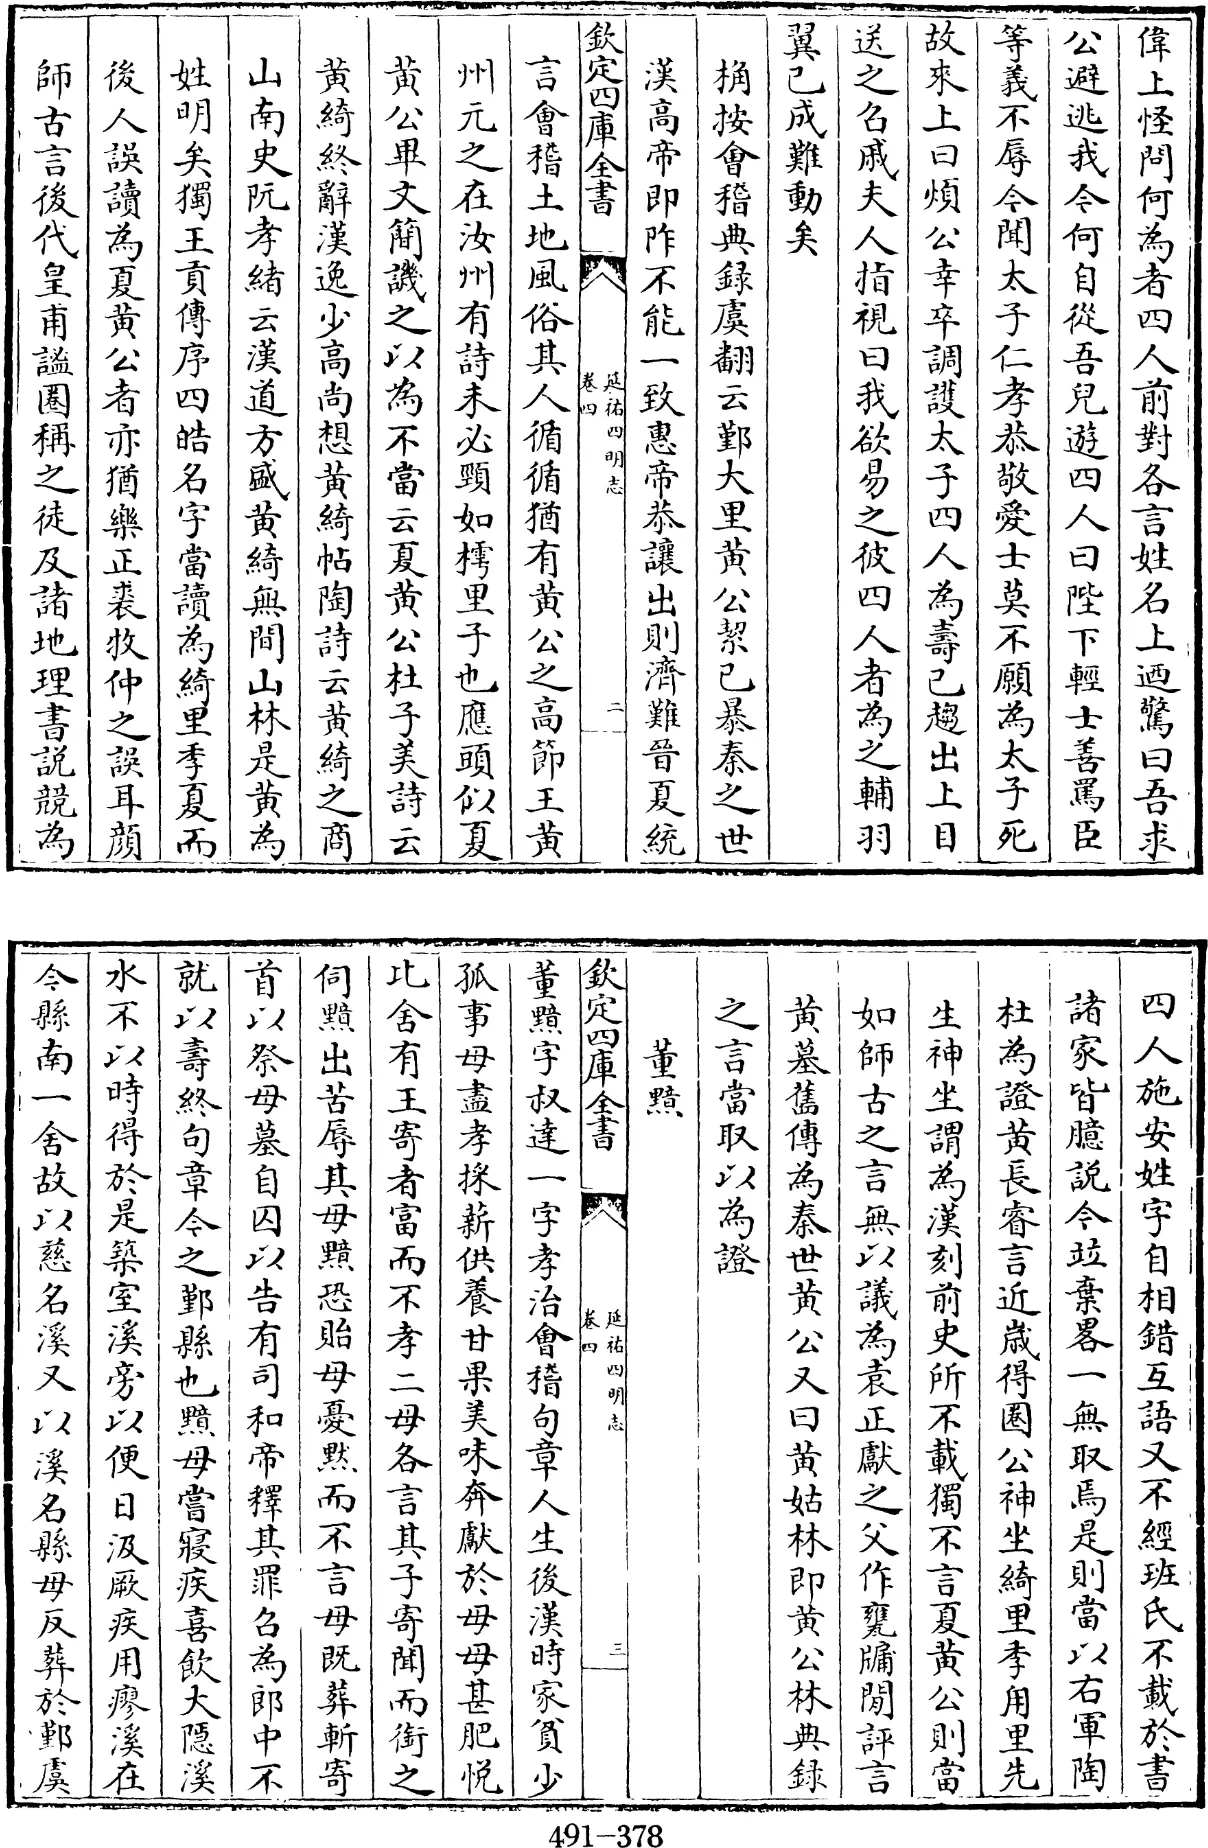 偉上怪問何為者四人前對各言姓名上迺驚曰吾求
公避逃我今何自從吾兒遊四人曰陛下輕士善罵臣
等義不辱今聞太子仁孝恭敬愛士莫不願為太子死
故來上曰煩公幸卒調護太子四人為壽已趨出上目
送之召戚夫人指視曰我欲易之彼四人者為之輔羽
翼已成難動矣
桷按會稽典録虞翻云鄞大里黄公絜已暴秦之世
漢高帝即阼不能一致惠帝恭讓出則濟難晉夏統
欽定四庫全書
延祐四明志
卷四
二
言會稽土地風俗其人循循猶有黄公之高節王黄
州元之在汝州有詩未必頸如樗里子也應頭似夏
黄公畢文簡譏之以為不當云夏黄公杜子美詩云
黄綺終辭漢逸少高尚想黄綺帖陶詩云黄綺之商
山南史阮孝緒云漢道方盛黄綺無間山林是黄為
姓明矣獨王貢傳序四皓名字當讀為綺里季夏而
後人誤讀為夏黄公者亦猶樂正裘牧仲之誤耳顔
師古言後代皇甫謐圏稱之徒及諸地理書説競為
四人施安姓字自相錯互語又不經班氏不載於書
諸家皆臆説今竝棄畧一無取焉是則當以右軍陶
杜為證黄長睿言近歳得圏公神坐綺里季用里先
生神坐謂為漢刻前史所不載獨不言夏黄公則當
如師古之言無以議為袁正獻之父作甕牖閒評言
黄墓舊傳為秦世黄公又曰黄姑林即黄公林典録
之言當取以為證
董黯
欽定四庫全書
延祐四明志
卷四
三
董黯字叔達一字孝治會稽句章人生後漢時家貧少
孤事母盡孝採薪供養甘果美味奔獻於母母甚肥悦
比舍有王寄者富而不孝二母各言其子寄聞而銜之
伺黯出苦辱其母黯恐貽母憂黙而不言母既葬斬寄
首以祭母墓自囚以告有司和帝釋其罪召為郎中不
就以壽終句章今之鄞縣也黯母嘗寢疾喜飲大隱溪
水不以時得於是築室溪旁以便日汲厥疾用瘳溪在
今縣南一舍故以慈名溪又以溪名縣母反葬於鄞虞
491-378